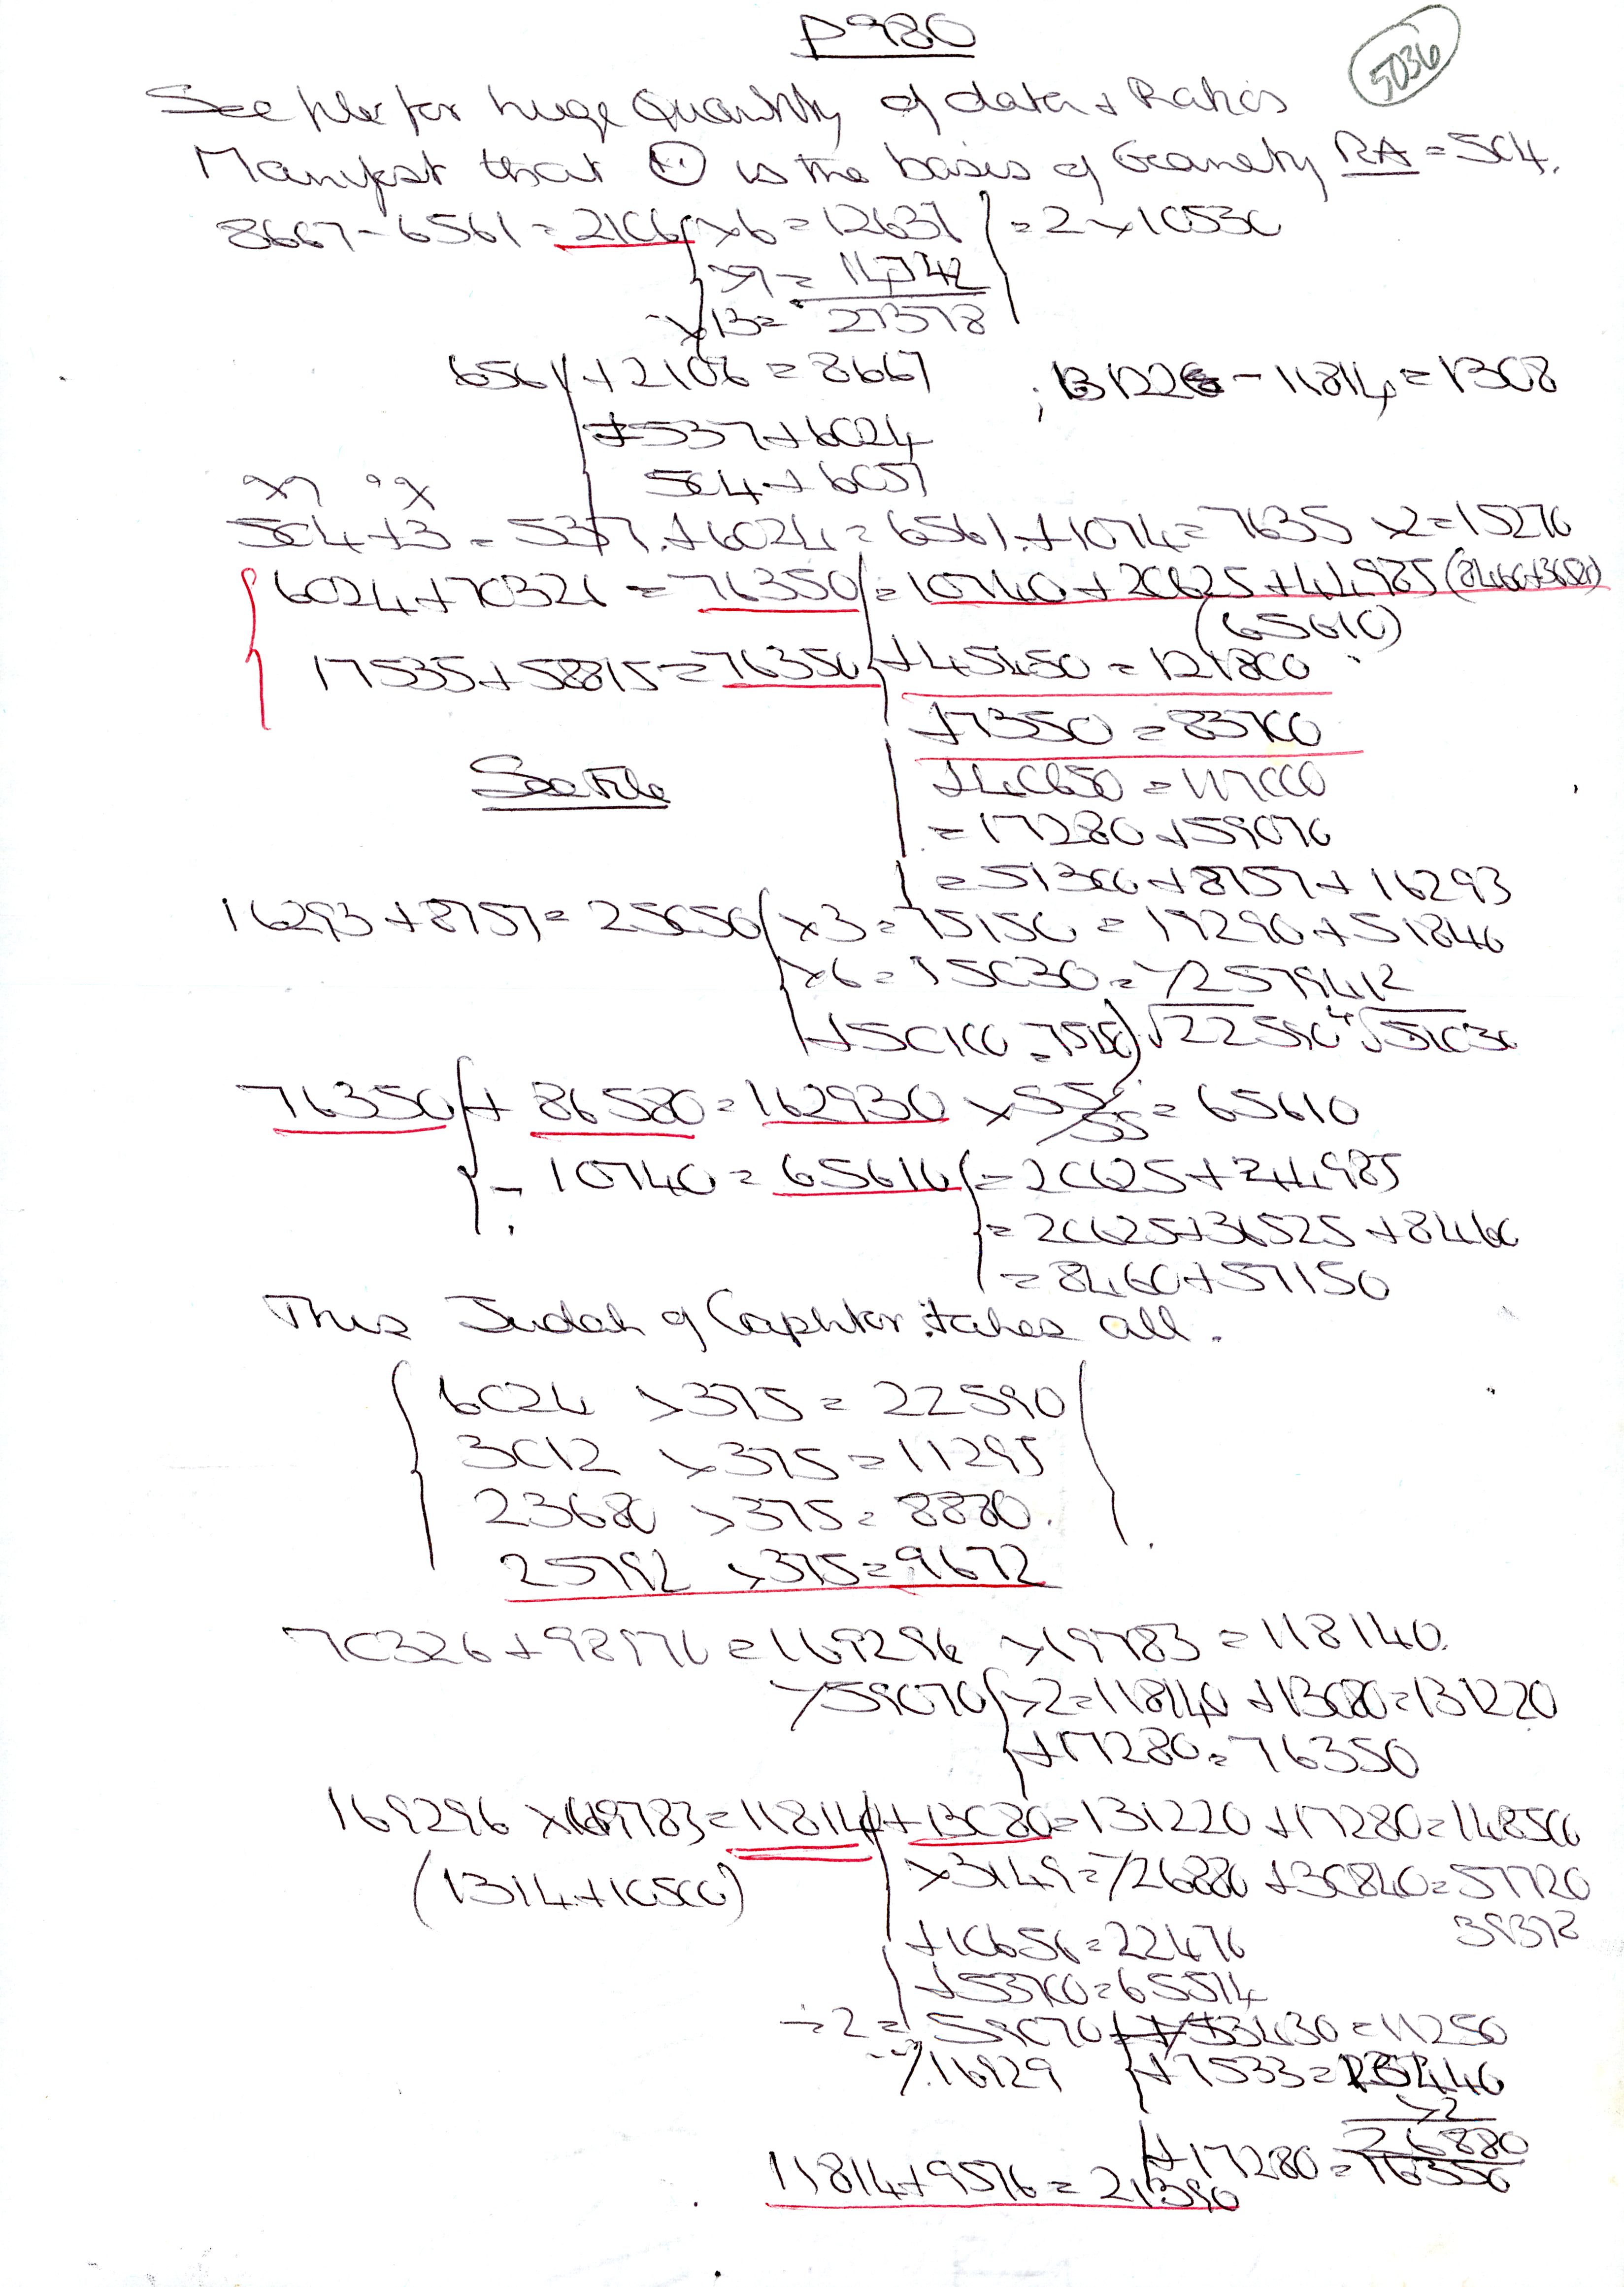 P980
5036
See file for huge Quantity of data + Ratios
Manifest that is the basis of Geometry RA = 504.
8667 - 6561 = 2106 x6 = 12637 = 2 x 10530
x7 = 14742
x13 = 27378
6561 + 2106 = 8667 ; 131226 - 11814 = 1308
+ 537 + 6024
504 + 6057
504 + 3 = 537 + 6024 = 6561 + 1074 = 7635 x2 = 15270
6024 + 70326 = 76350 = 10740 + 20625 + 44985 (8460 + 36525)
(65610)
17535 + 58815 = 76350 + 45450 = 121800
+ 7350 = 83700
See File
+ 40650 = 117000
= 17280 + 59070
= 51300 + 8757 + 16293
16293 + 8757 = 25050 x3 = 75150 = 19290 + 51840
x6 = 15030 = 72579412
+ 50100 = 75150
76350 + 86580 = 162930 = 65610
- 10740 = 65610 = 20625 + 44985
= 20625 + 36525 + 8460
= 8460 + 57150
This Judah of Caphtor takes all.
6024 x 375 = 22590
3012 x 375 = 11295
23680 x 375 = 8880.
25792 x 375 = 9672
70326 + 98970 = 169296 x 19783 = 118140.
59070 x2 = 118140 + 13080 = 131220
+ 17280 = 76350
169296 x 69783 = 11814 + 13080 = 131220 + 17280 = 148500
(1314 + 10500) x 3149 = 726880 + 30840 = 57720
39378
+ 10656 = 22470
+ 53700 = 65514
÷ 2 = 59070 + 53430 = 11250
16929 + 7533 =
x2
26880
+ 17280 = 76350
11814 + 9576 = 21390